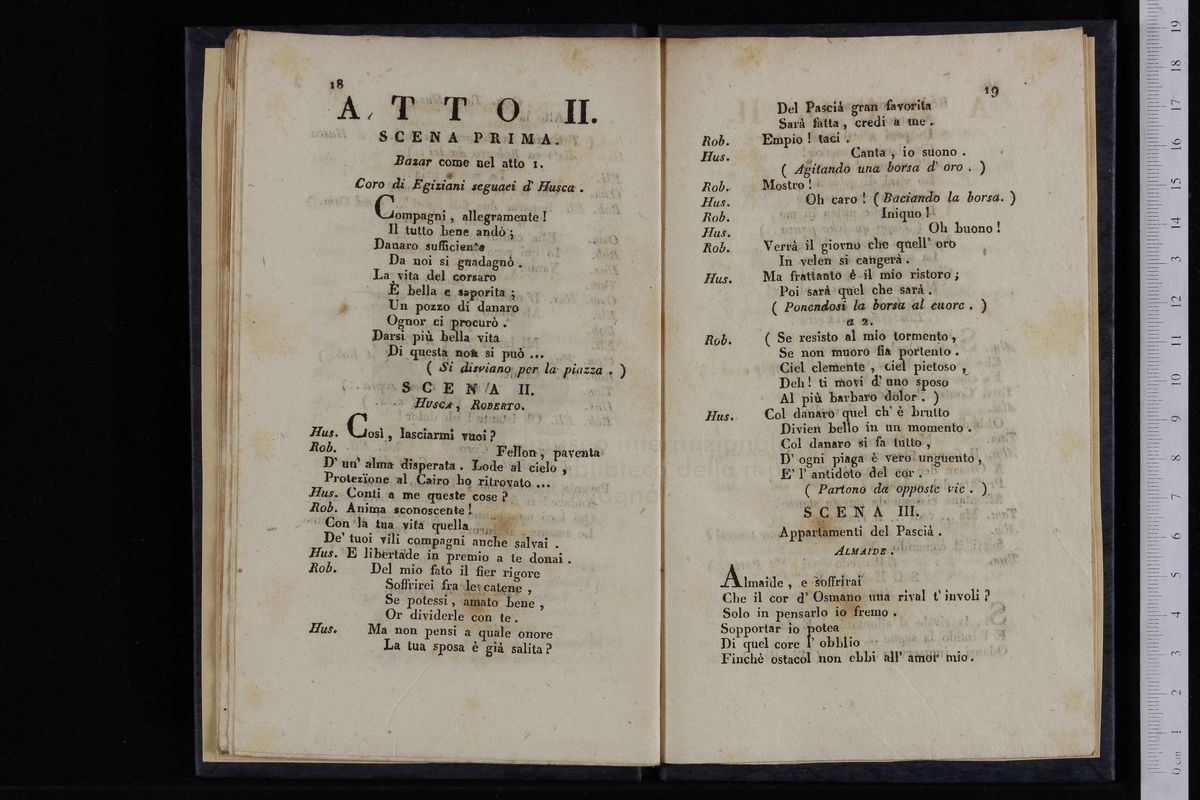 18
ATTO II.
SCENA PRIMA.
Bazar come nel atto 1.
Coro di Egiziani seguaci d' Husca.
Compagni, allegramente!
Il tutto bene andò;
Danaro sufficiente
Da noi si guadagnò.
La vita del corsaro
È bella e saporita;
Un pozzo di danaro
Ognor ci procurò.
Darsi più bella vita
Di questa non si può ...
( Si disviano per la piazza. )
SCENA II.
HUSCA, ROBERTO.
Hus. Così, lasciarmi vuoi?
Rob. Fellon, paventa
D' un' alma disperata. Lode al cielo,
Protezione al Cairo ho ritrovato ...
Hus. Conti a me queste cose?
Rob. Anima sconoscente!
Con la tua vita quella
De' tuoi vili compagni anche salvai.
Hus. E libertade in premio a te donai.
Rob. Del mio fato il fier rigore
Soffrirei fra le catene,
Se potessi, amato bene,
Or dividerle con te.
Hus. Ma non pensi a quale onore
La tua sposa è già salita?
19
Del Pascià gran favorita
Sarà fatta, credi a me.
Rob. Empio! taci.
Hus. Canta, io suono.
( Agitando una borsa d' oro. )
Rob. Mostro!
Hus. Oh caro! ( Baciando la borsa. )
Rob. Iniquo!
Hus. Oh buono!
Rob. Verrà il giorno che quell' oro
In velen si cangerà.
Hus. Ma frattanto è il mio ristoro;
Poi sarà quel che sarà.
( Ponendosi la borsa al cuore. )
a 2.
Rob. ( Se resisto al mio tormento,
Se non muoro fia portento.
Ciel clemente, ciel pietoso,
Deh! ti movi d' uno sposo
Al più barbaro dolor. )
Hus. Col danaro quel ch' è brutto
Divien bello in un momento.
Col danaro si fa tutto,
D' ogni piaga è vero unguento,
E' l' antidoto del cor.
( Partono da opposte vie. )
SCENA III.
Appartamenti del Pascià.
ALMAIDE.
Almaide, e soffrirai
Che il cor d' Osmano una rival t' involi?
Solo in pensarlo io fremo.
Sopportar io potea
Di quel core l' obblio
Finchè ostacol non ebbi all' amor mio.